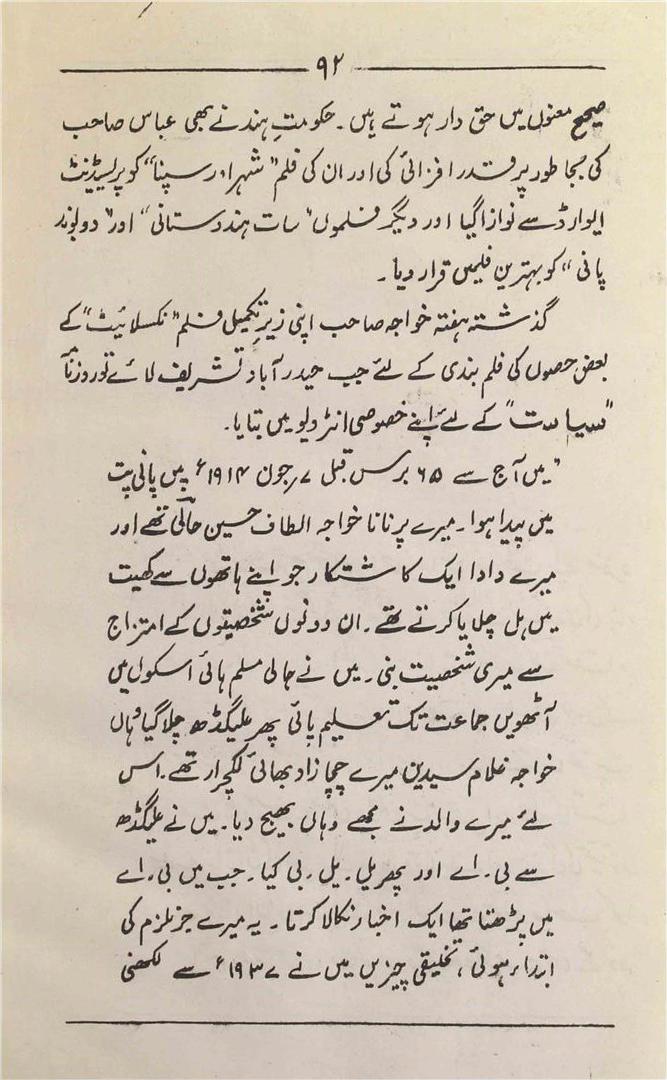 ۹۲
صحیح معنوں میں حق دار ہوتے ہیں۔ حکومتِ ہند نے بھی عباس صاحب
کی بجا طور پر قدر افزائی کی اور ان کی فلم "شہر اور سپنا" کو پریسیڈنٹ
ایوارڈ سے نوازا گیا اور دیگر فلموں "سات ہندوستانی" اور "دو بوند
پانی" کو بہترین فلمیں قرار دیا۔
گذشتہ ہفتہ خواجہ صاحب اپنی زیرِ تکمیل فلم "نکسلائیٹ" کے
بعض حصوں کی فلم بندی کے لئے جب حیدرآباد تشریف لائے تو روزنامہ
"سیاست" کے لئے اپنے خصوصی انٹرویو میں بتایا۔
"میں آج سے ۶۵ برس قبل ۷؍جون ۱۹۱۴ء میں پانی پت
میں پیدا ہوا۔ میرے پرنانا خواجہ الطاف حسین حالیؔ تھے اور
میرے دادا ایک کاشتکار جو اپنے ہاتھوں سے کھیت
میں ہل چلایا کرتے تھے۔ ان دونوں شخصیتوں کے امتزاج
سے میری شخصیت بنی۔ میں نے حالی مسلم ہائی اسکول میں
آٹھویں جماعت تک تعلیم پائی پھر علیگڈھ چلا گیا وہاں
خواجہ غلام سیدین میرے چچا زاد بھائی لکچرار تھے۔ اس
لئے میرے والد نے مجھے وہاں بھیج دیا۔ میں نے علیگڈھ
سے بی۔ اے اور پھر یل۔ یل۔ بی کیا۔ جب میں بی۔ اے
میں پڑھتا تھا ایک اخبار نکالا کرتا۔ یہ میرے جرنلزم کی
ابتداء ہوئی، تخلیقی چیزیں میں نے ۱۹۳۷ء سے لکھنی